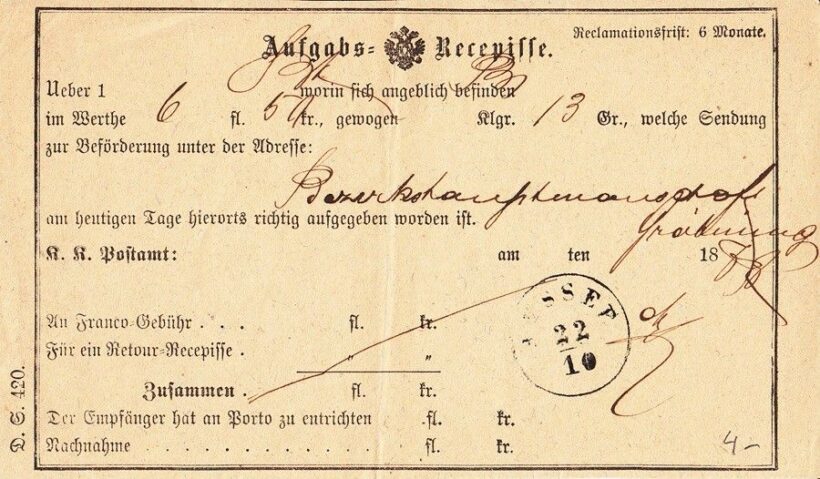 Reclamationsfrist: 6 Monate.
Aufgabs= Recepisse.
Ueber 1 worin sich angeblich befinden
im Werthe 6 fl. 50 kr., gewogen Klgr. 13 Gr., welche Sendung
zur Beförderung unter der Adresse:
Bezirkshauptmannschaft
am heutigen Tage hierorts richtig aufgegeben worden ist.
Gröbming
K. K. Postamt: am ten 18
An Franco-Gebühr . . . fl. kr.
Für ein Retour-Recepisse . „ „
USSEE
22
10
Zusammen . fl. kr.
Der Empfänger hat an Porto zu entrichten .fl. kr.
Nachnahme . . . . . . . . . . . . fl. kr.
D. S. 420.
4-